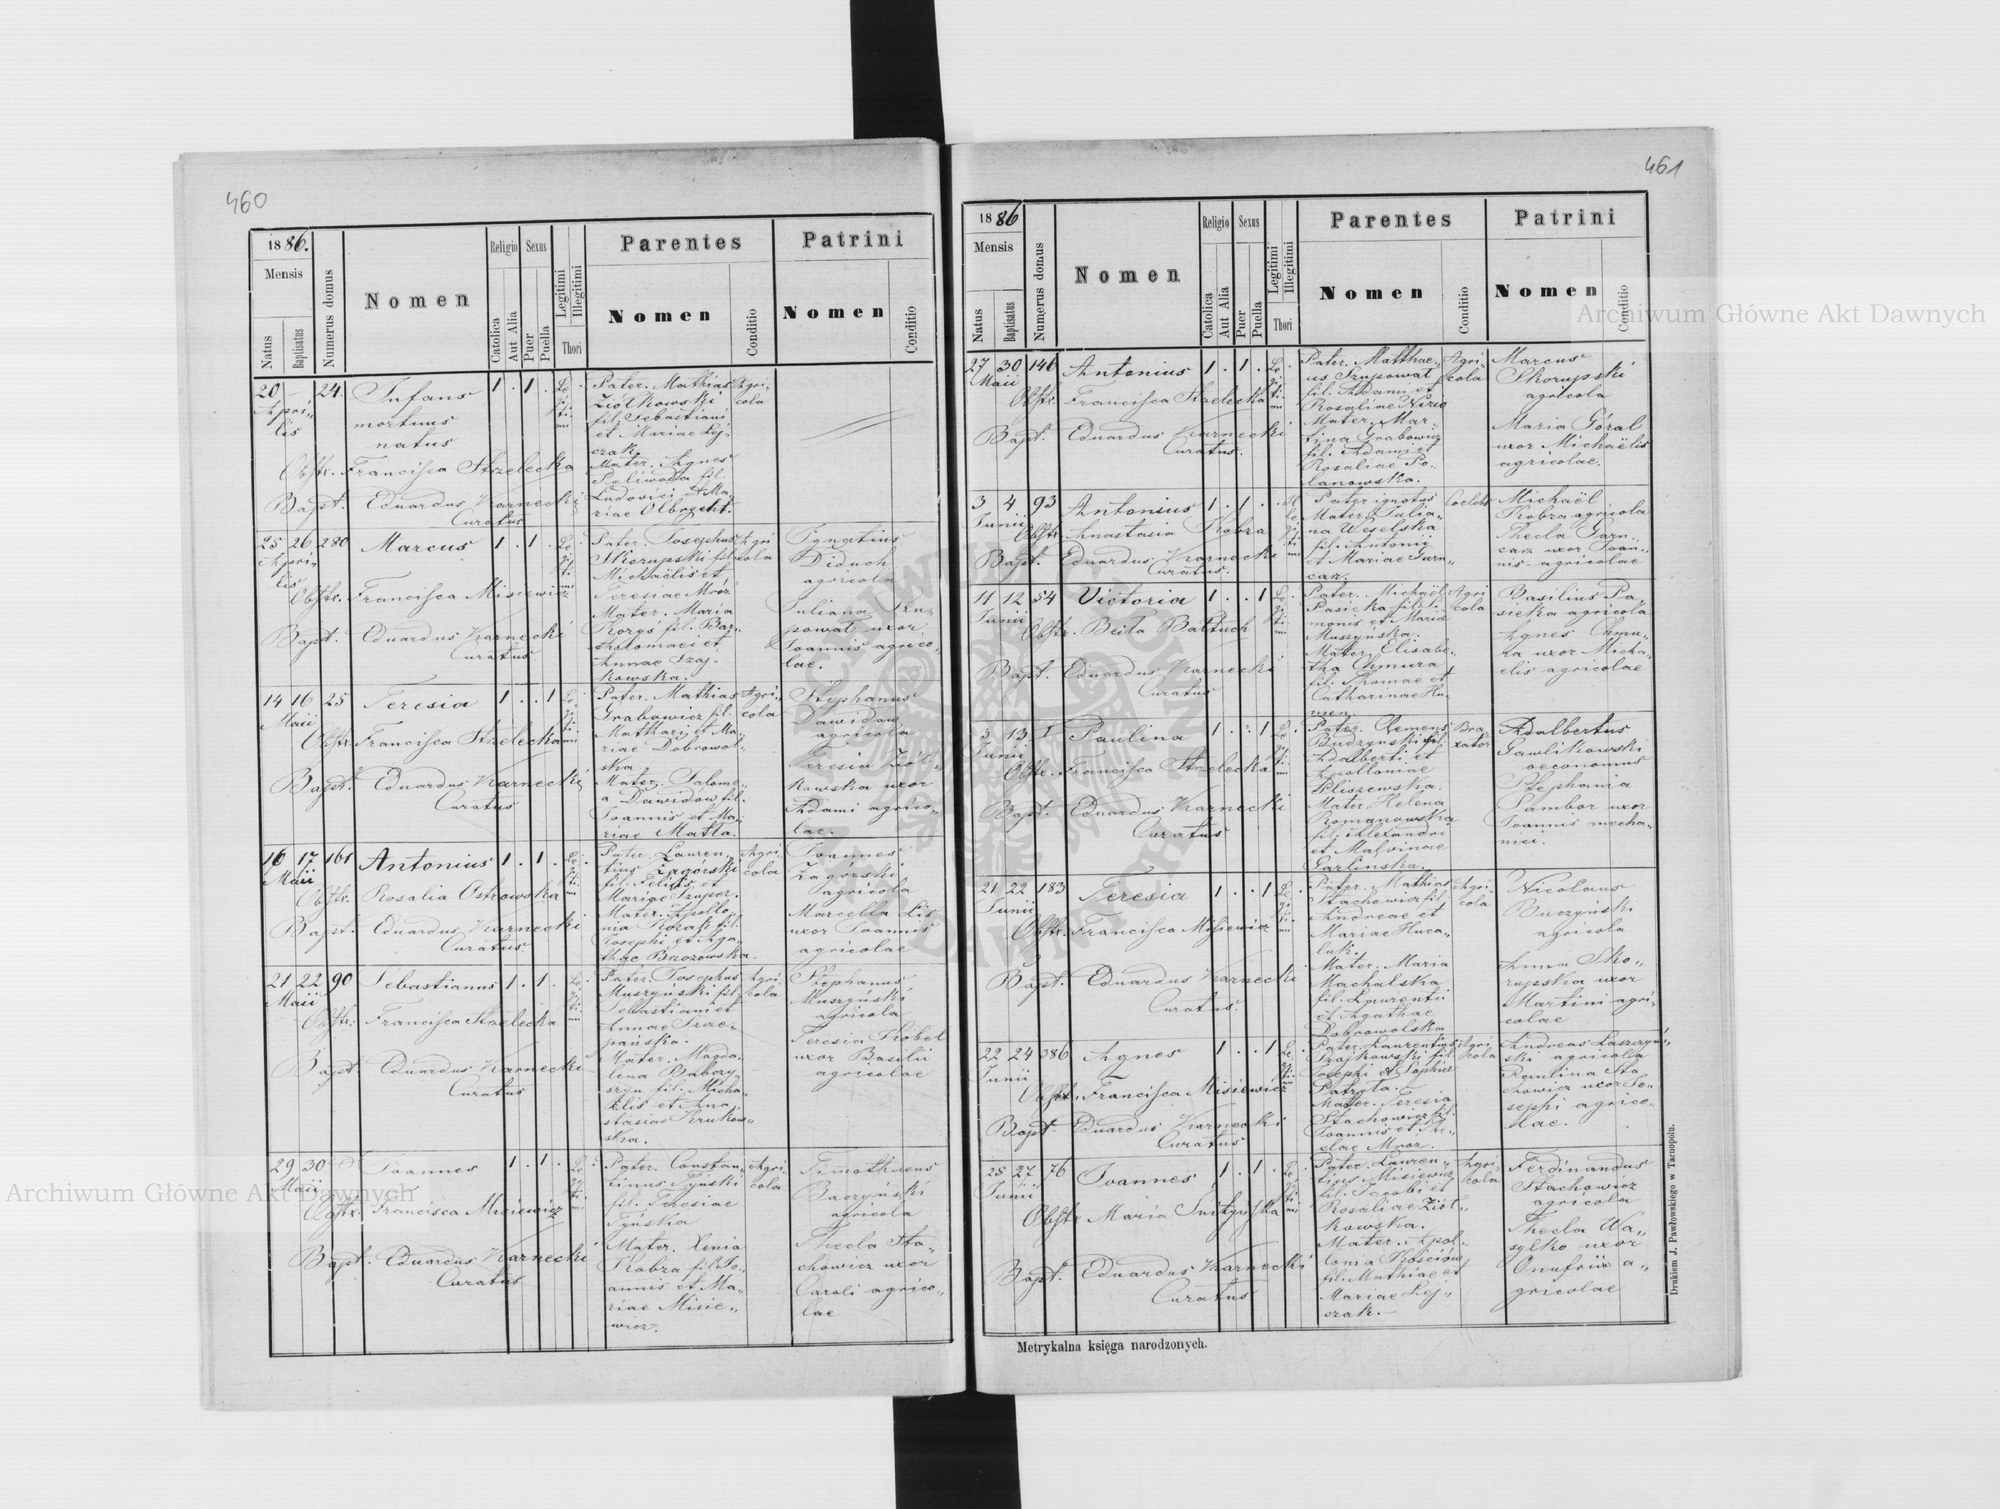 460
1886.
Mensis
Natus
Baptisatus
Numerus domus
Nomen
Religio
Catolica
Aut Alia
Sexus
Puer
Puella
Legitimi
Illegitimi
Thori
Parentes
Nomen
Conditio
Patrini
Nomen
Conditio
20 — 24. Infans 1 . 1 .
Aprilis
mortuus
natus
Obstr. Francisca Strzelecka
Bapt. Eduardus Karnecki
Curatus
Pater. Mathias Agri-
Ziółkowski cola
fil. Sebastiani
et Mariae Lej-
czak.
Mater. Agnes
Paliwoda fil.
Ludovici et Ma-
riae Olbrycht.
25 26 280 Marcus 1 . 1 .
Aprilis
Obstr. Francisca Misiewicz
Bapt. Eduardus Karnecki
Curatus
Pater. Josephus Agri
Skorupski fil. cola
Michaëlis et
Teresiae Mróz
Mater. Maria
Koryś fil. Bar-
tholomaei et
Annae Szaj-
kowska.
Ignatius
Diduch
agricola
Juliana Szu-
powat uxor
Joannis agrico-
lae.
14 16 25 Teresia 1 . . 1
Maii
Obstr. Francisca Strzelecka
Bapt. Eduardus Karnecki
Curatus
Pater. Mathias Agri-
Grabowicz fil. cola
Mathaei et Ma-
riae Dobrowol-
ska
Mater. Salome-
a Dawidow fil.
Joannis et Ma-
riae Matla.
Stephanus
Dawidow
agricola
Teresia Ziół-
kowska uxor
Adami agrico-
lae.
16 17 161 Antonius 1 . 1 .
Maii
Obstr. Rosalia Ostrowska
Bapt. Eduardus Karnecki
Curatus
Pater. Lauren- Agri-
tius Zagórski cola
fil. Felicis et
Mariae Szuper.
Mater. Apollo
nia
Josephi et Aga-
thae Brzozowska.
Joannes
Zagórski
agricola
Marcella Lis
uxor Joannis
agricolae
21 22 90 Sebastianus 1 . 1 .
Maii
Obstr. Francisca Strzelecka
Bapt. Eduardus Karnecki
Curatus
Pater. Josephus Agri-
Muszyński fil. cola
Sebastiani et
Annae Szcze-
pańska.
Mater. Magda-
lena Babczy-
szyn fil. Micha-
elis et Ana
stasiae Krukow-
ska.
Stephanus
Muszyński
agricola
Teresia Kobel
uxor Basilii
agricolae
29 30 Joannes 1 . 1 .
Maii
Obstr. Francisca Misiewicz
Bapt. Eduardus Karnecki
Curatus
Pater. Constan- Agri-
tinus Tynski cola
fil. Teresiae
Tynska
Mater. Xenia
Kobza fil. Jo-
annis et Ma-
riae Misie-
wicz.
Timothaeus
Baczyński
agricola
Thecla Sta-
chowicz uxor
Caroli agrico-
lae
461
1886
Mensis
Natus
Baptisatus
Numerus domus
Nomen
Religio
Catolica
Aut Alia
Sexus
Puer
Puella
Legitimi
Illegitimi
Thori
Parentes
Nomen
Conditio
Patrini
Nomen
Conditio
27 30 146 Antonius 1 . 1 .
Maii
Obstr. Francisca Strzelecka
Bapt. Eduardus Karnecki
Curatus.
Pater. Matthae- Agri-
us Szupowat cola
fil. Adami et
Rosaliae Nizio
Mater. Mar-
tina Grabowicz
fil. Adami et
Rosaliae Po-
lanowska.
Marcus
Skorupski
agricola
Maria Góral
uxor Michaëlis
agricolae.
3 4 93 Antonius 1 . 1 .
Junii
Obstr. Anastasia Kobza
Bapt. Eduardus Karnecki
Curatus.
Pater ignotus Coelebs
Mater. Julia-
na Weselska
fil. Antonii
et Mariae Garn-
carz.
Michaël
Kobza agricola
Thecla Garn-
carz uxor Joan-
nis agricolae
11 12 54 Victoria 1 . . 1
Junii
Obstr. Beila Baltuch
Bapt. Eduardus Karnecki
Curatus
Pater. Michaël Agri
Pasieka fil. Si- cola
monis et Maria
Muszynska.
Mater. Elisabe-
tha Chmura
fil. Thomae et
Catharinae Hu-
men.
Basilius Pa-
sieka agricola
Agnes Chmu-
ra uxor Micha-
elis agricolae
5 13 1 Paulina 1 . . 1
Junii
Obstr. Francisca Strzelecka
Bapt. Eduardus Karnecki
Curatus
Pater. Clemens Bra-
Budzynski fil. xator
Adalberti et
Apolloniae
Pliszewska.
Mater Helena
Romanowska
fil. Alexandri
et Malvinae
Garlinska.
Adalbertus
Gawlikowski
oeconomus
Stephania
Sambor uxor
Joannis mecha-
nici.
21 22 183 Teresia 1 . . 1
Junii
Obstr. Francisca Misiewicz
Bapt. Eduardus Karnecki
Curatus.
Pater. Mathias Agri-
Stachowicz fil. cola
Andreae et
Mariae Huca-
luk.
Mater. Maria
Machalska
fil. Laurentii
et Agathae
Dobrowolska
Nicolaus
Buczyński
agricola
Anna Sko-
rupska uxor
Martini agri-
colae
22 24 386 Agnes 1 . . 1
Junii
Obstr. Francisca Misiewicz
Bapt. Eduardus Karnecki
Curatus
Pater. Laurentius Agri
Szajkowski fil. cola
Josephi et Sophiae
Patryta.
Mater. Teresia
Stachowicz fil.
Joannis et He-
elae Mroz.
Andreas Laszczyń-
ski agricola
Paulina Sta
chowicz uxor Jo-
sephi agrico-
lae.
25 27 76 Joannes 1 . 1 .
Junii
Obstr. Maria
Bapt. Eduardus Karnecki
Curatus
Pater. Lauren- Agri-
tius Misiewicz cola
fil. Jacobi et
Rosaliae Ziół-
kowska.
Mater. Apol-
lonia Kościów
fil. Mathiae et
Mariae Lej-
czak.
Ferdinandus
Stachowicz
agricola
Thecla Wa-
sylko uxor
Onufrii a-
gricolae
Metrykalna księga narodzonych.
Drukiem J. Pawłowskiego w Tarnopolu.
Archiwum Główne Akt Dawnych
Archiwum Główne Akt Dawnych